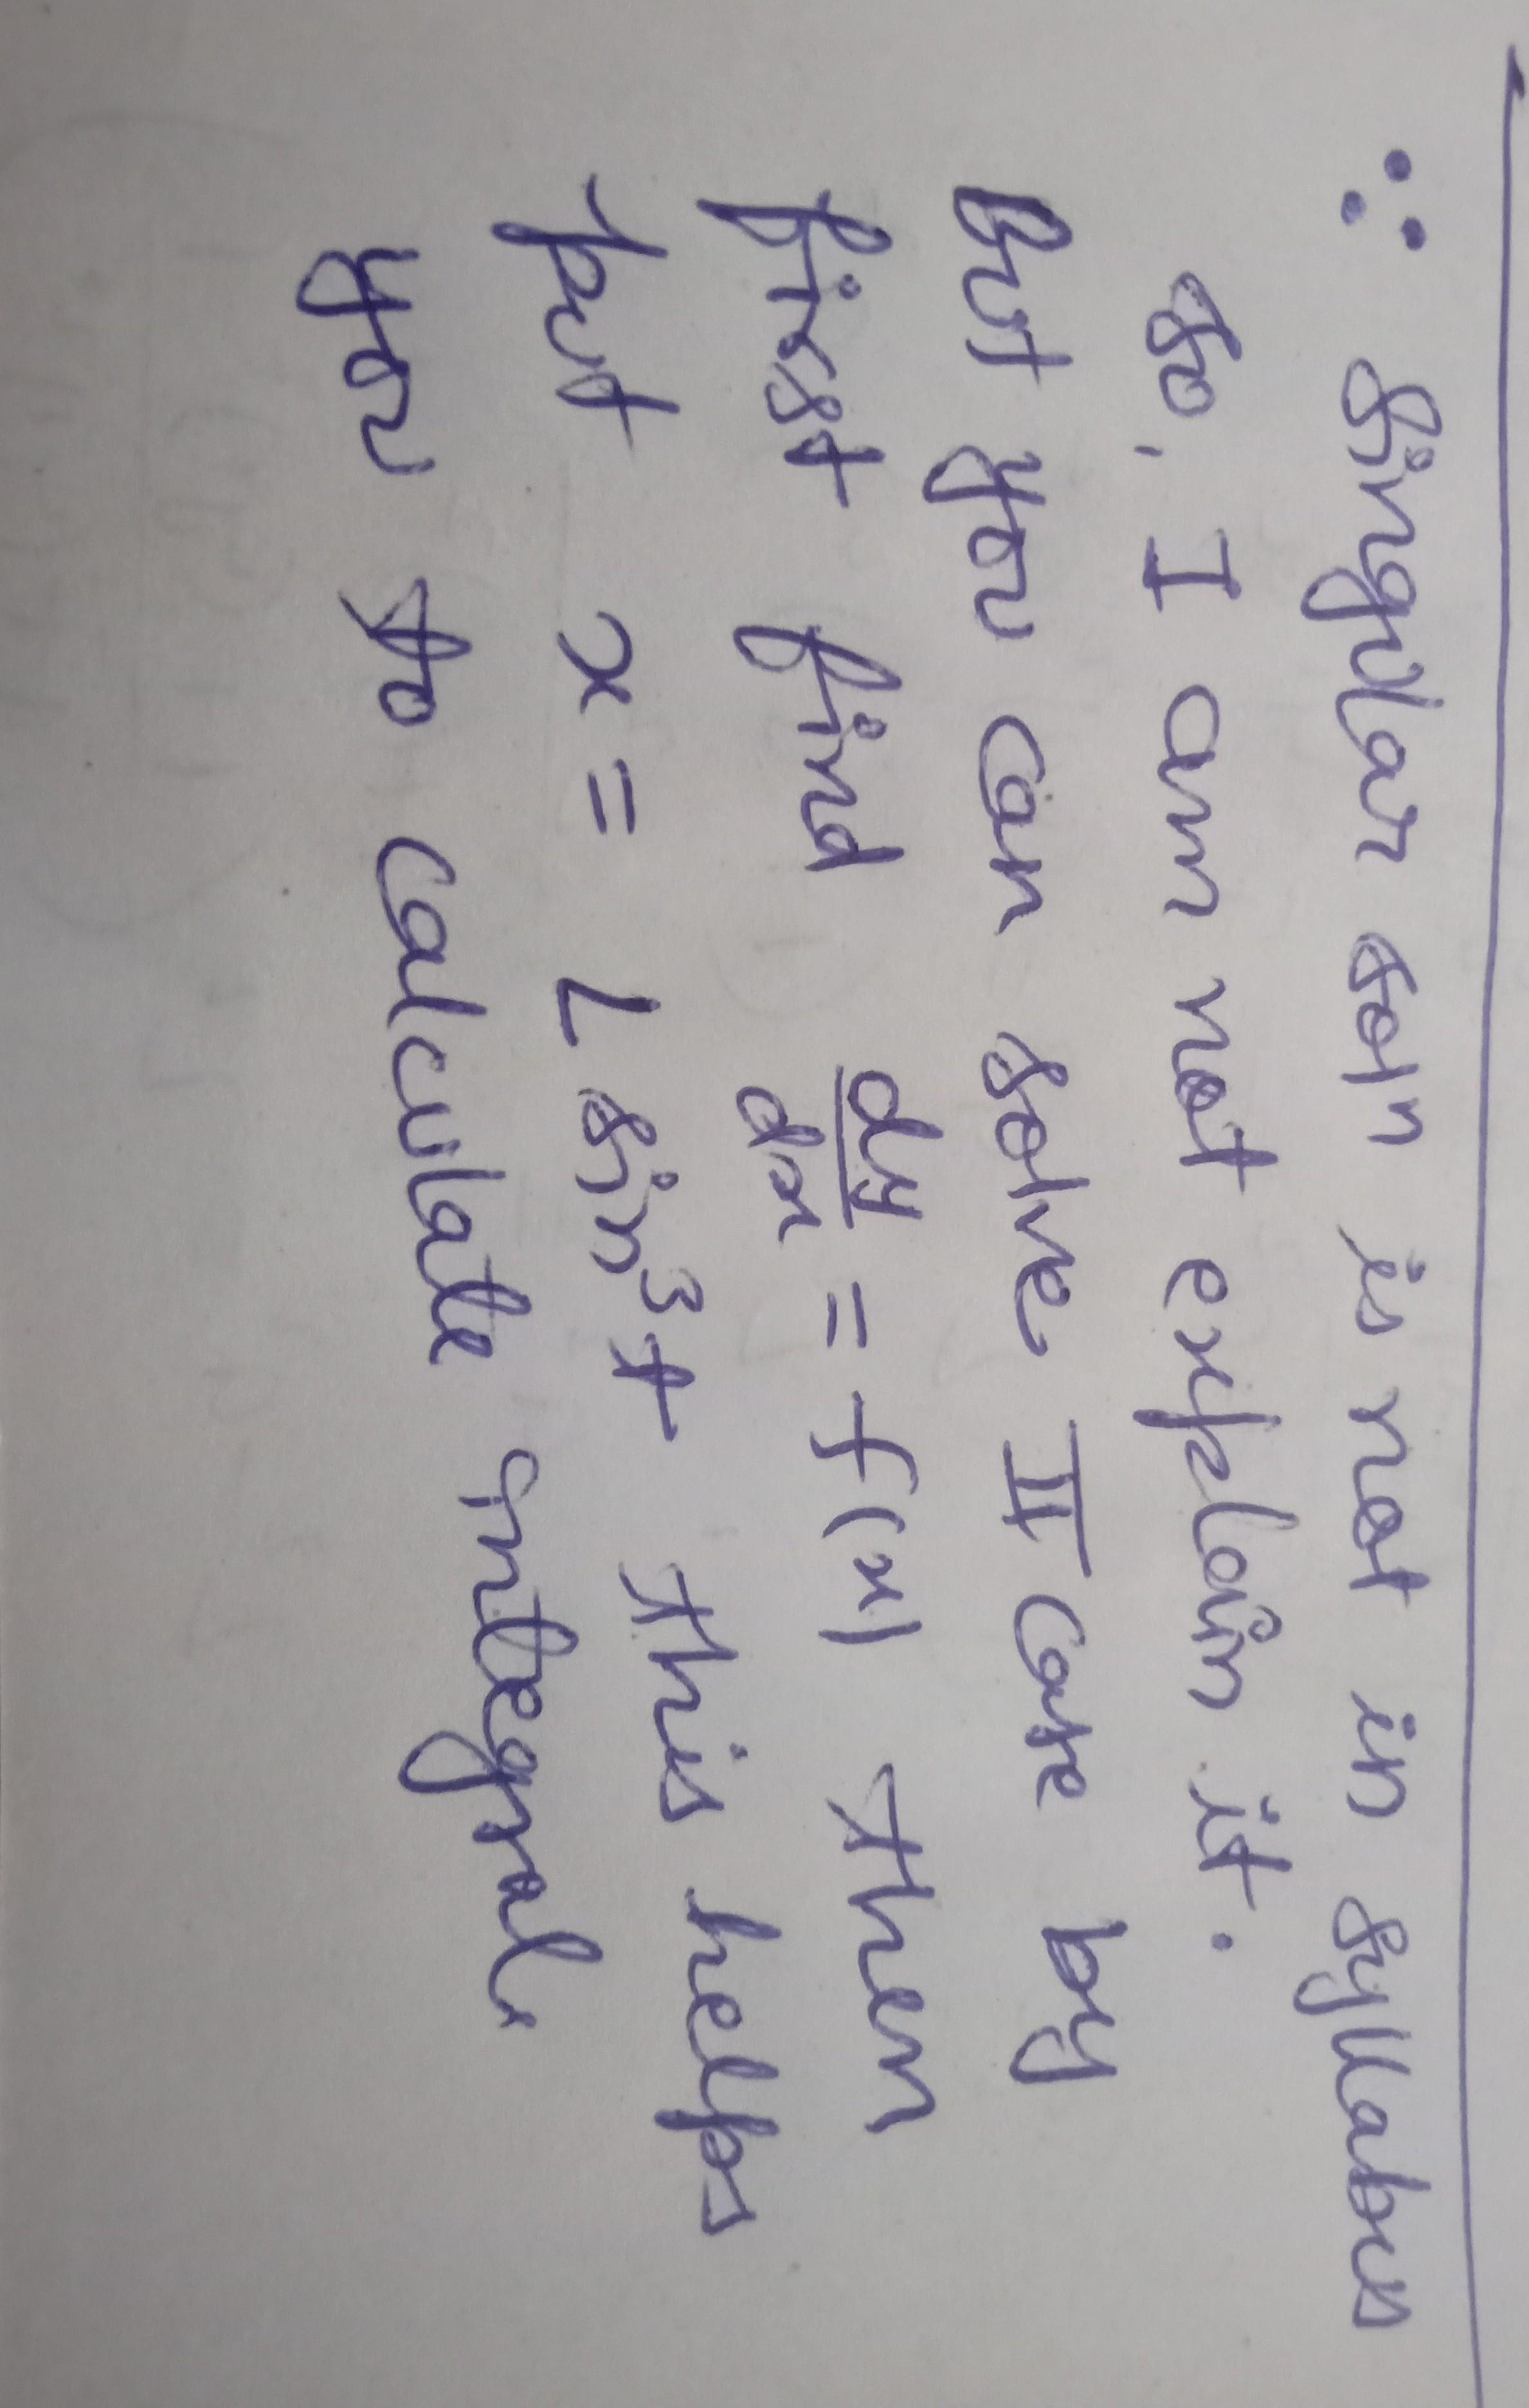 ∵ singular solⁿ is not in syllabus
so, I am not explain it.
But you can solve II case by
first find dy/dx = f(x) then
put x = L sin³t this helps
you to calculate integral.